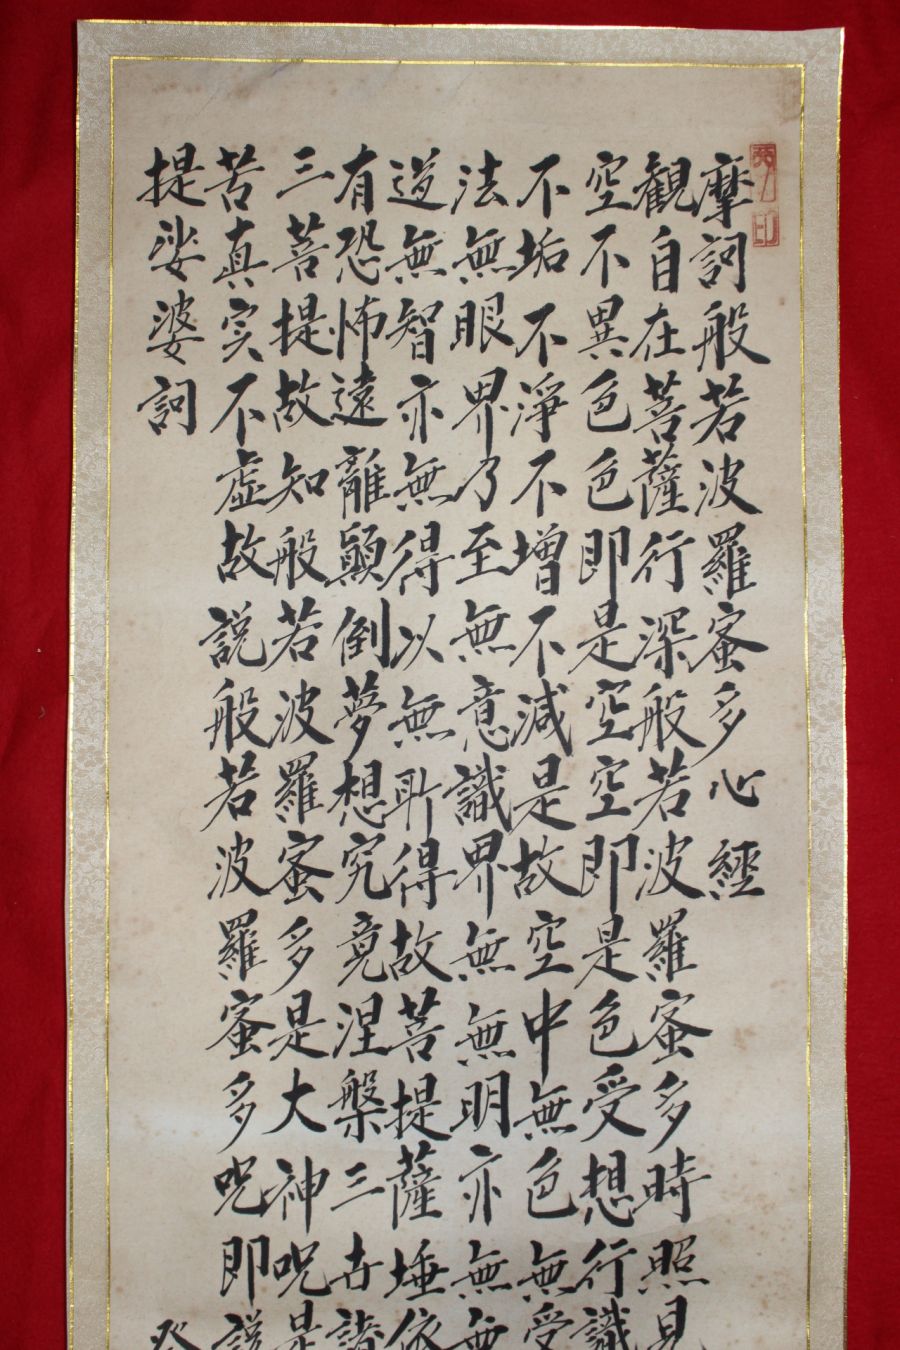 摩訶般若波羅蜜多心經
觀自在菩薩行深般若波羅蜜多時照見
空不異色色即是空空即是色受想行識
不垢不淨不增不減是故空中無色無受
法無眼界乃至無意識界無無明亦無無
道無智亦無得以無所得故菩提薩埵依
有恐怖遠離顛倒夢想究竟涅槃三世諸
三菩提故知般若波羅蜜多是大神呪是
苦真实不虛故説般若波羅蜜多呪即説
提娑婆訶